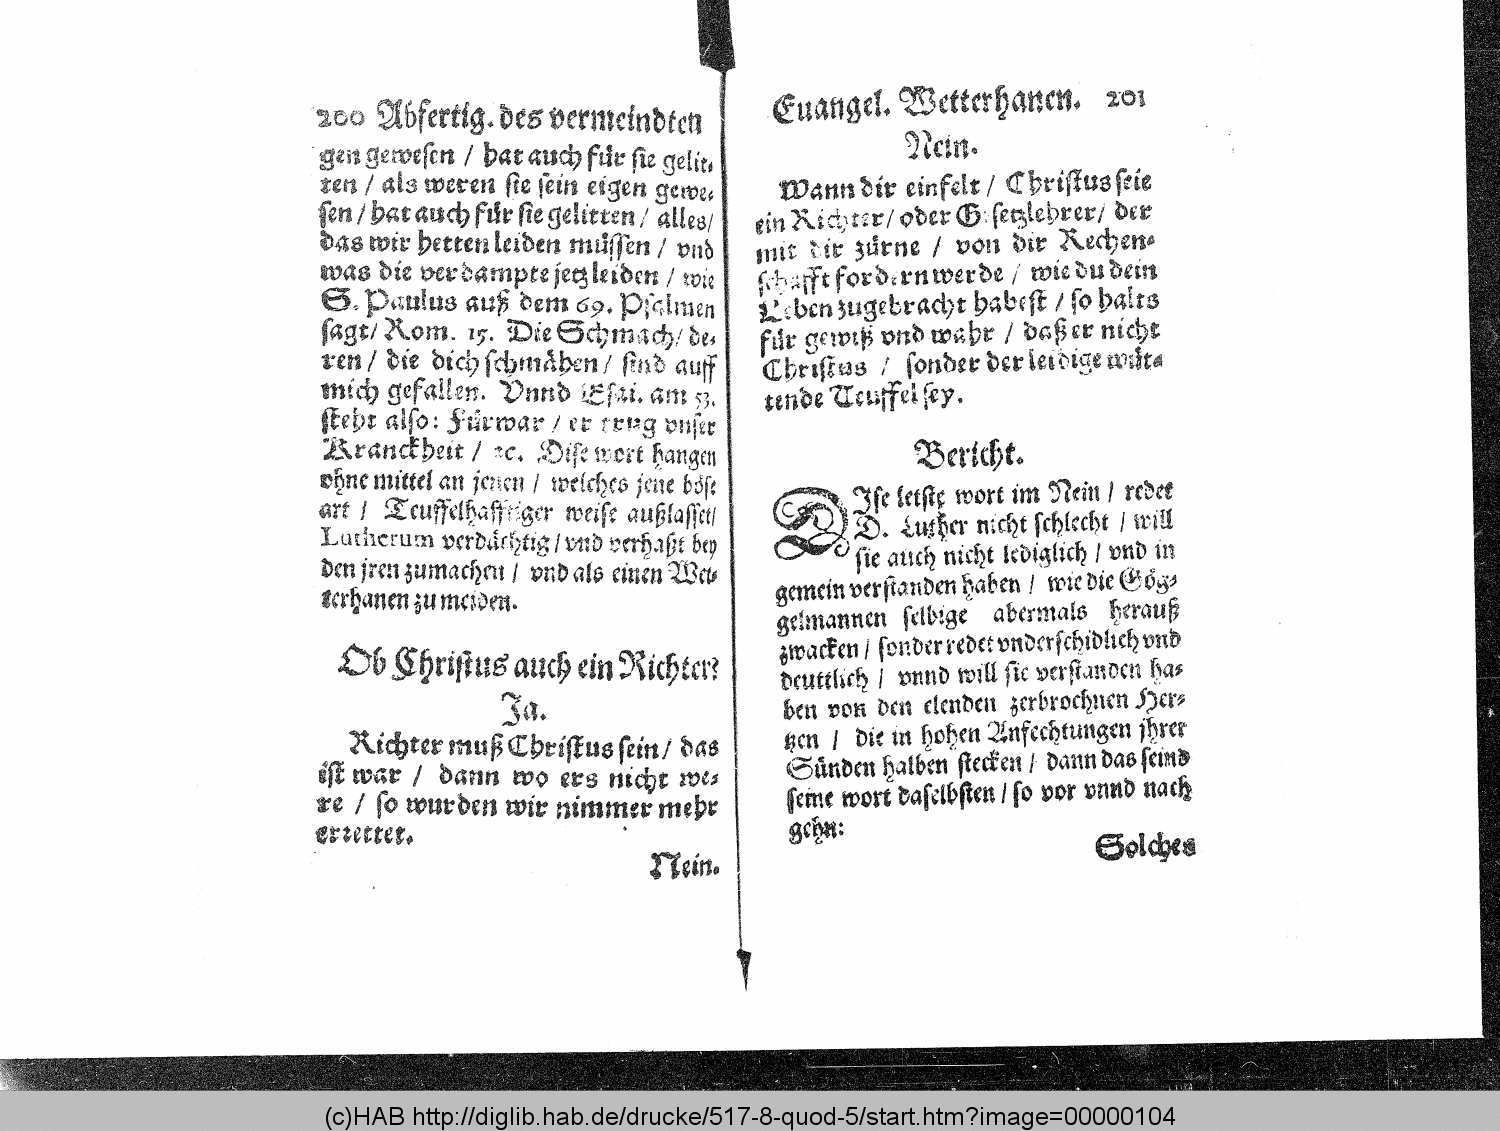 200 Abfertig. des vermeindten
gen gewesen / hat auch für sie gelit⸗
ten / als weren sie sein eigen gewe⸗
sen / hat auch für sie gelitten / alles /
das wir hetten leiden müssen / vnd
was die verdampte jetz leiden / wie
S. Paulus auß dem 69. Psalmen
sagt / Rom. 15. Die Schmach / de⸗
ren / die dich schmähen / sind auff
mich gefallen. Vnnd Esai. am 53.
steht also: Fürwar / er trug vnser
Kranckheit / ꝛc. Dise wort hangen
ohne mittel an jenen / welches jene böse
art / Teuffelhafftiger weise außlasset /
Lutherum verdächtig / vnd verhaßt bey
den jren zumachen / vnd als einen Wet⸗
terhanen zu meiden.
Ob Christus auch ein Richter?
Ja.
Richter muß Christus sein / das
ist war / dann wo ers nicht we⸗
re / so wurden wir nimmer mehr
errettet.
Nein.
Euangel. Wetterhanen. 201
Nein.
Wann dir einfelt / Christus seie
ein Richter / oder Gesetzlehrer / der
mit dir zürne / von dir Rechen⸗
schafft fordern werde / wie du dein
Leben zugebracht habest / so halts
für gewiß vnd wahr / daß er nicht
Christus / sonder der leidige wüt⸗
tende Teuffel sey.
Bericht.
DIse letste wort im Nein / redet
D. Luther nicht schlecht / will
sie auch nicht lediglich / vnd in
gemein verstanden haben / wie die Gög⸗
gelmannen selbige abermals herauß
zwacken / sonder redet vnderschidlich vnd
deuttlich / vnnd will sie verstanden ha⸗
ben von den elenden zerbrochnen Her⸗
tzen / die in hohen Anfechtungen jhrer
Sünden halben stecken / dann das seind
seine wort daselbsten / so vor vnnd nach
gehn:
Solches
(c)HAB http://diglib.hab.de/drucke/517-8-quod-5/start.htm?image=00000104